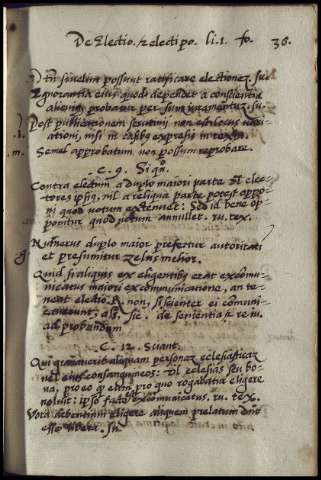 De Electio. & electi po. li. 1. fo. 36.
possunt ratificare electionez. su.
Ignorantia eius quod dependet a conscientia
aliena probatur per suum iuramentuz. su.
Post publicationem scrutinij non est locus vari
ationi, nisi in casibꝫ expressis in textu.
.1.
.m. Semel approbatum non possum reprobare.
. C. 9. Si qn̄.
Contra electum a duplo maiori parte electores ipsiꝫ, nil a reliqua parte potest oppo
ni quod votum extenuet: Sed id bene op
ponitur quod votum annullet. ru. tex.
Numerus duplo maior prefertur autoritati
g et presumitur zelus melior.
Quid si aliquis ex eligentibꝫ erat excōmu
nicatus maiori excomunicatione, an te
neat electio. R. non, si scienter ei comuni
carunt; als. sic. de sententia & re iu.
ad probandum
. C. 12. Sciant.
Qui grauauerit aliquam personaz ecclesiasticaz
vel eius consanguineos: vl ecclesias seu bo
na, pro eo quod pro quo rogabatur eligere
noluit: ipso facto est excōmunicatus. ru. tex.
Vota debentium eligere aliquem prelatum dn̄t
esse libera. su.